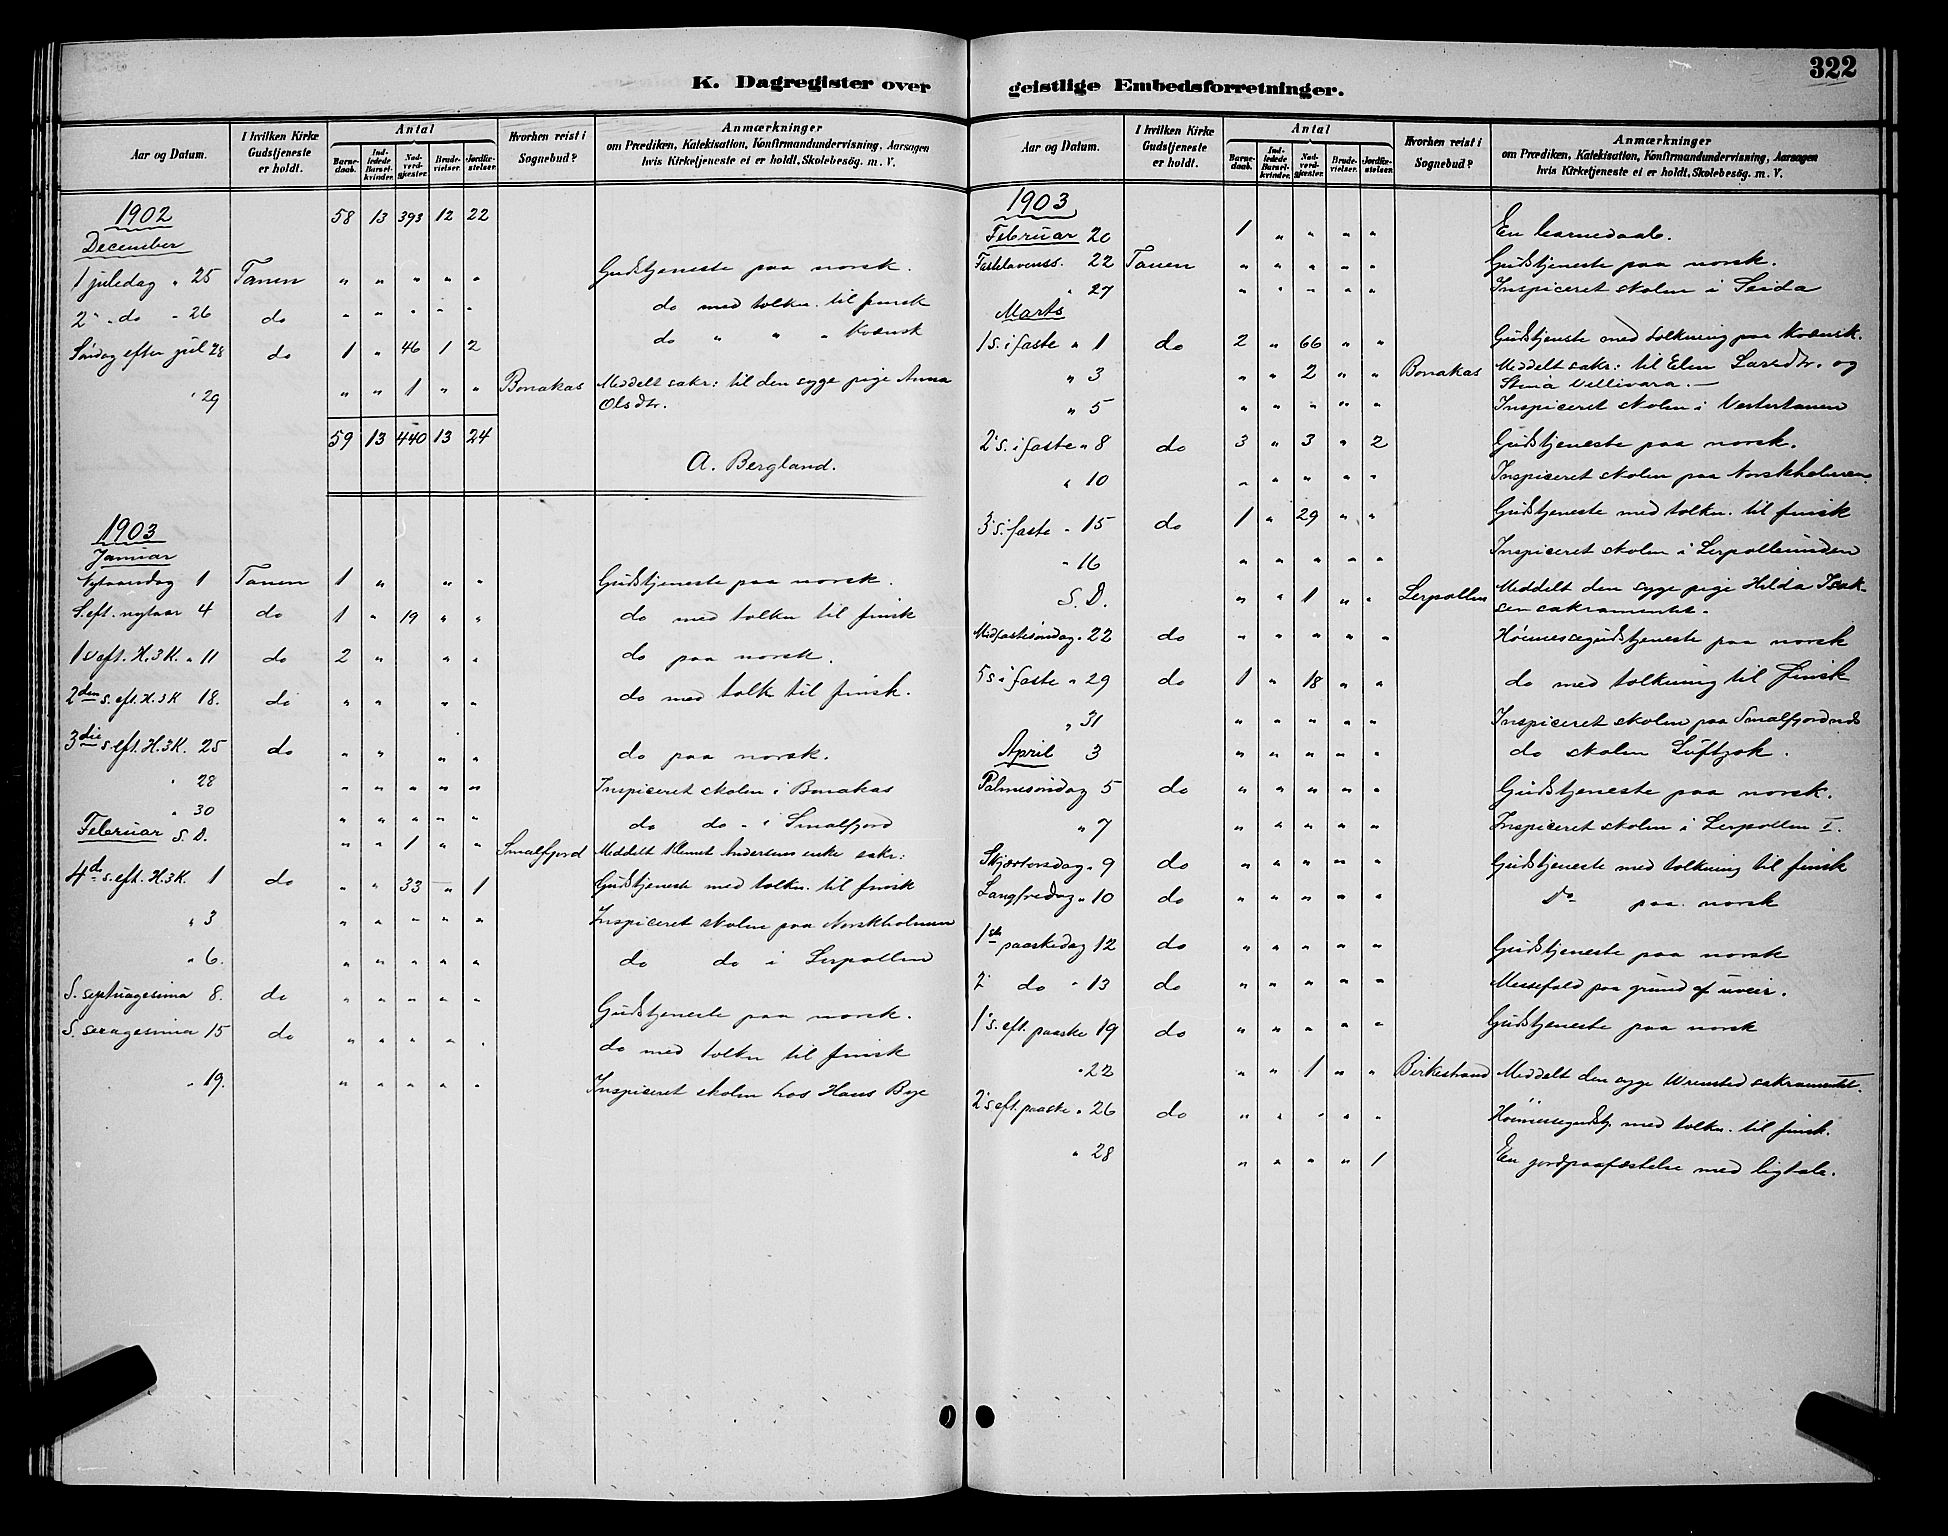 322
K. Dagregister over geistlige Embedsforretninger.
Aar og Datum. I hvilken Kirke Gudstjeneste er holdt. Antal Barne-daab. Ind-ledede Barsel-kvinder. Nad-verd-gjester. Brude-vielser. Jordfæ-stelser. Hvorhen reist i Sognebud? Anmærkninger
om Prædiken, Katekisation, Konfirmandundervisning, Aarsagen
hvis Kirketjeneste ei er holdt, Skolebesøg. m. V.
1902 58 13 393 12 22
December
1 juledag " 25 Tanen " " " " " Gudstjeneste paa norsk.
2 " do " 26 do " " " " " do med tolkn. til finsk
Søndag efter jul 28 do 1 " 46 1 2 do " " " Kvænsk
" 29 " " 1 " " Bonakas Meddelt sakr: til den syge pige Anna
Olsdtr.
59 13 440 13 24
A. Bergland.
1903
Januar
Nytaarsdag 1 Tanen 1 " " " Gudstjeneste paa norsk.
S. eft. nytaar 4 do 1 " 19 " " do med tolkn til finsk
1 s eft. H.3K. " 11 do 2 " " " do paa norsk.
2den s. eft. H.3K 18. do " " " " do med tolk til finsk.
3die s. eft. H.3K. 25 do " " " " do paa norsk.
" 28 " " " " " Inspiceret skolen i Bonakas
" 30 " " " " " do do " i Smalfjord
Februar S. D. " " 1 " " Smalfjord Meddelt Klemet Andersens enke sakr:
4de s. eft. H.3K. 1 do " " 33 " 1 Gudstjeneste med tolkn. til finsk
" 3 " " " " " Inspiceret skolen paa Norskholmen
" 6. " " " " " do do i Lerpollen
S. septuagesima 8. do " " " " " Gudstjeneste paa norsk.
S. sexagesima 15 do " " " " " do med tolkn til finsk
" 19. " " " " " Inspiceret skolen hos Hans Bye
Aar og Datum. I hvilken Kirke Gudstjeneste er holdt. Antal Barne-daab. Ind-ledede Barsel-kvinder. Nad-verd-gjester. Brude-vielser. Jordfæ-stelser. Hvorhen reist i Sognebud? Anmærkninger
om Prædiken, Katekisation, Konfirmandundervisning, Aarsagen
hvis Kirketjeneste ei er holdt, Skolebesøg. m. V.
1903
Februar 20 1 " " " " En barnedaab.
Fastelavenss. 22 Tanen " " " " " Gudstjeneste paa norsk.
" 27 " " " " " Inspiceret skolen i Seida
Marts
1 s. i faste " 1 do 2 " 66 " " Gudstjeneste med tolkning paa kvænsk.
" 3 " " 2 " " Bonakas Meddelt sakr: til Elen Larsdtr. og
Stina Vellivara. —
" 5 " " " " " Inspiceret skolen i Vestertanen
2 s. i faste " 8 do 3 " 3 " 2 Gudstjeneste paa norsk.
" 10 " " " " " Inspiceret skolen paa Norskholmen
3 s. faste " 15 do 1 " 29 " " Gudstjeneste med tolkn. til finsk
" 16 " " " " " Inspiceret skolen i Lerpollunden
S. D. " " 1 " " Lerpollen Meddelt den syge pige Hilda Isak-
sen sakramentet.
Midfastesøndag " 22 do " " " " " Høimessegudstjeneste paa norsk
5 s i faste " 29 do 1 " 18 " " do med tolkning til finsk
" 31 " " " " " Inspiceret skolen paa Smalfjordnds
April 3 " " " " " do skolen Luftjok.
Palmesøndag 5 do " " " " " Gudstjeneste paa norsk.
" 7 " " " " " Inspiceret skolen i Lerpollen I.
Skjærtorsdag " 9 do " " " " " Gudstjeneste med tolkning til finsk
Langfredag " 10 do " " " " " Do paa norsk
1ste paaskedag 12 do " " " " " Gudstjeneste paa norsk
2 do " 13 do " " " " " Messefald paa grund af uveir.
1 s. eft. paaske 19 do " " " " " Gudstjeneste paa norsk
" 22 " " 1 " " Birkestrand Meddelt den syge sakramentet.
2 s eft. paaske " 26 do " " " " " Høimessegudstj. med tolkn. til finsk.
" 28 " " " " 1 En jordpaafæstelse med ligtale.